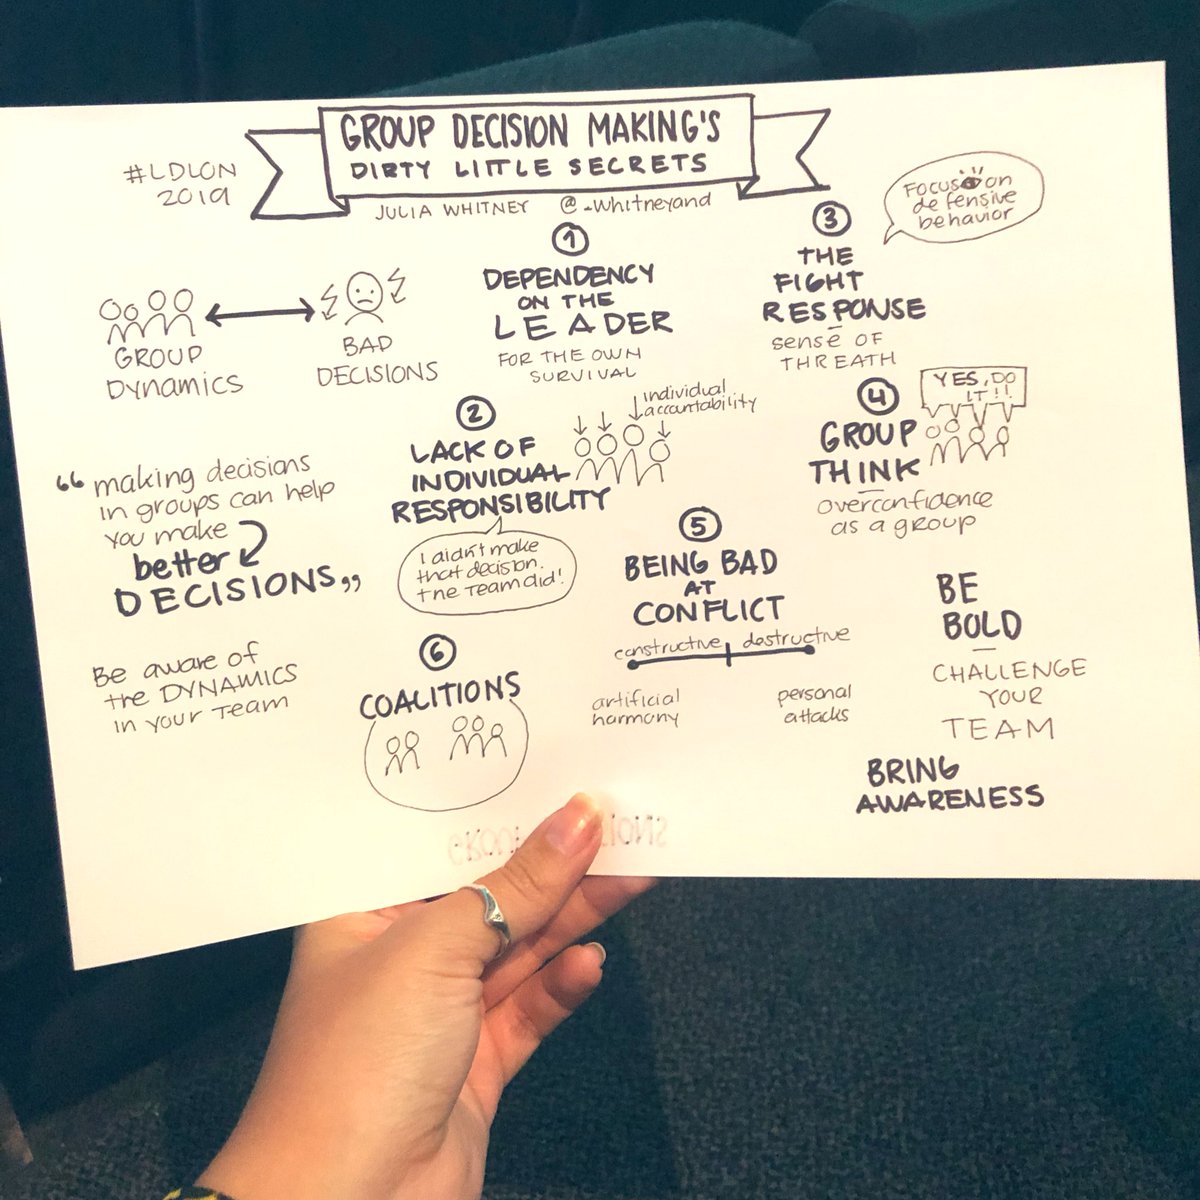 GROUP DECISION MAKING'S
DIRTY LITTLE SECRETS
#LDLON
2019
JULIA WHITNEY @-whitneyand
GROUP
Dynamics
BAD
DECISIONS
1
DEPENDENCY
ON THE
LEADER
FOR THE OWN
SURVIVAL
3
THE
FIGHT
RESPONSE
sense OF
THREATH
Focus on
defensive
behavior
2
LACK OF
INDIVIDUAL
RESPONSIBILITY
individual
accountability
I didn't make
that decision.
The Team did!
4
GROUP
THINK
overconfidence
as a group
YES, DO
IT!!
“making decisions
in groups can help
you make
better
DECISIONS„
5
BEING BAD
AT
CONFLICT
constructive destructive
artificial
harmony
personal
attacks
Be aware of
the DYNAMICS
in your Team
6
COALITIONS
BE
BOLD
CHALLENGE
YOUR
TEAM
BRING
AWARENESS